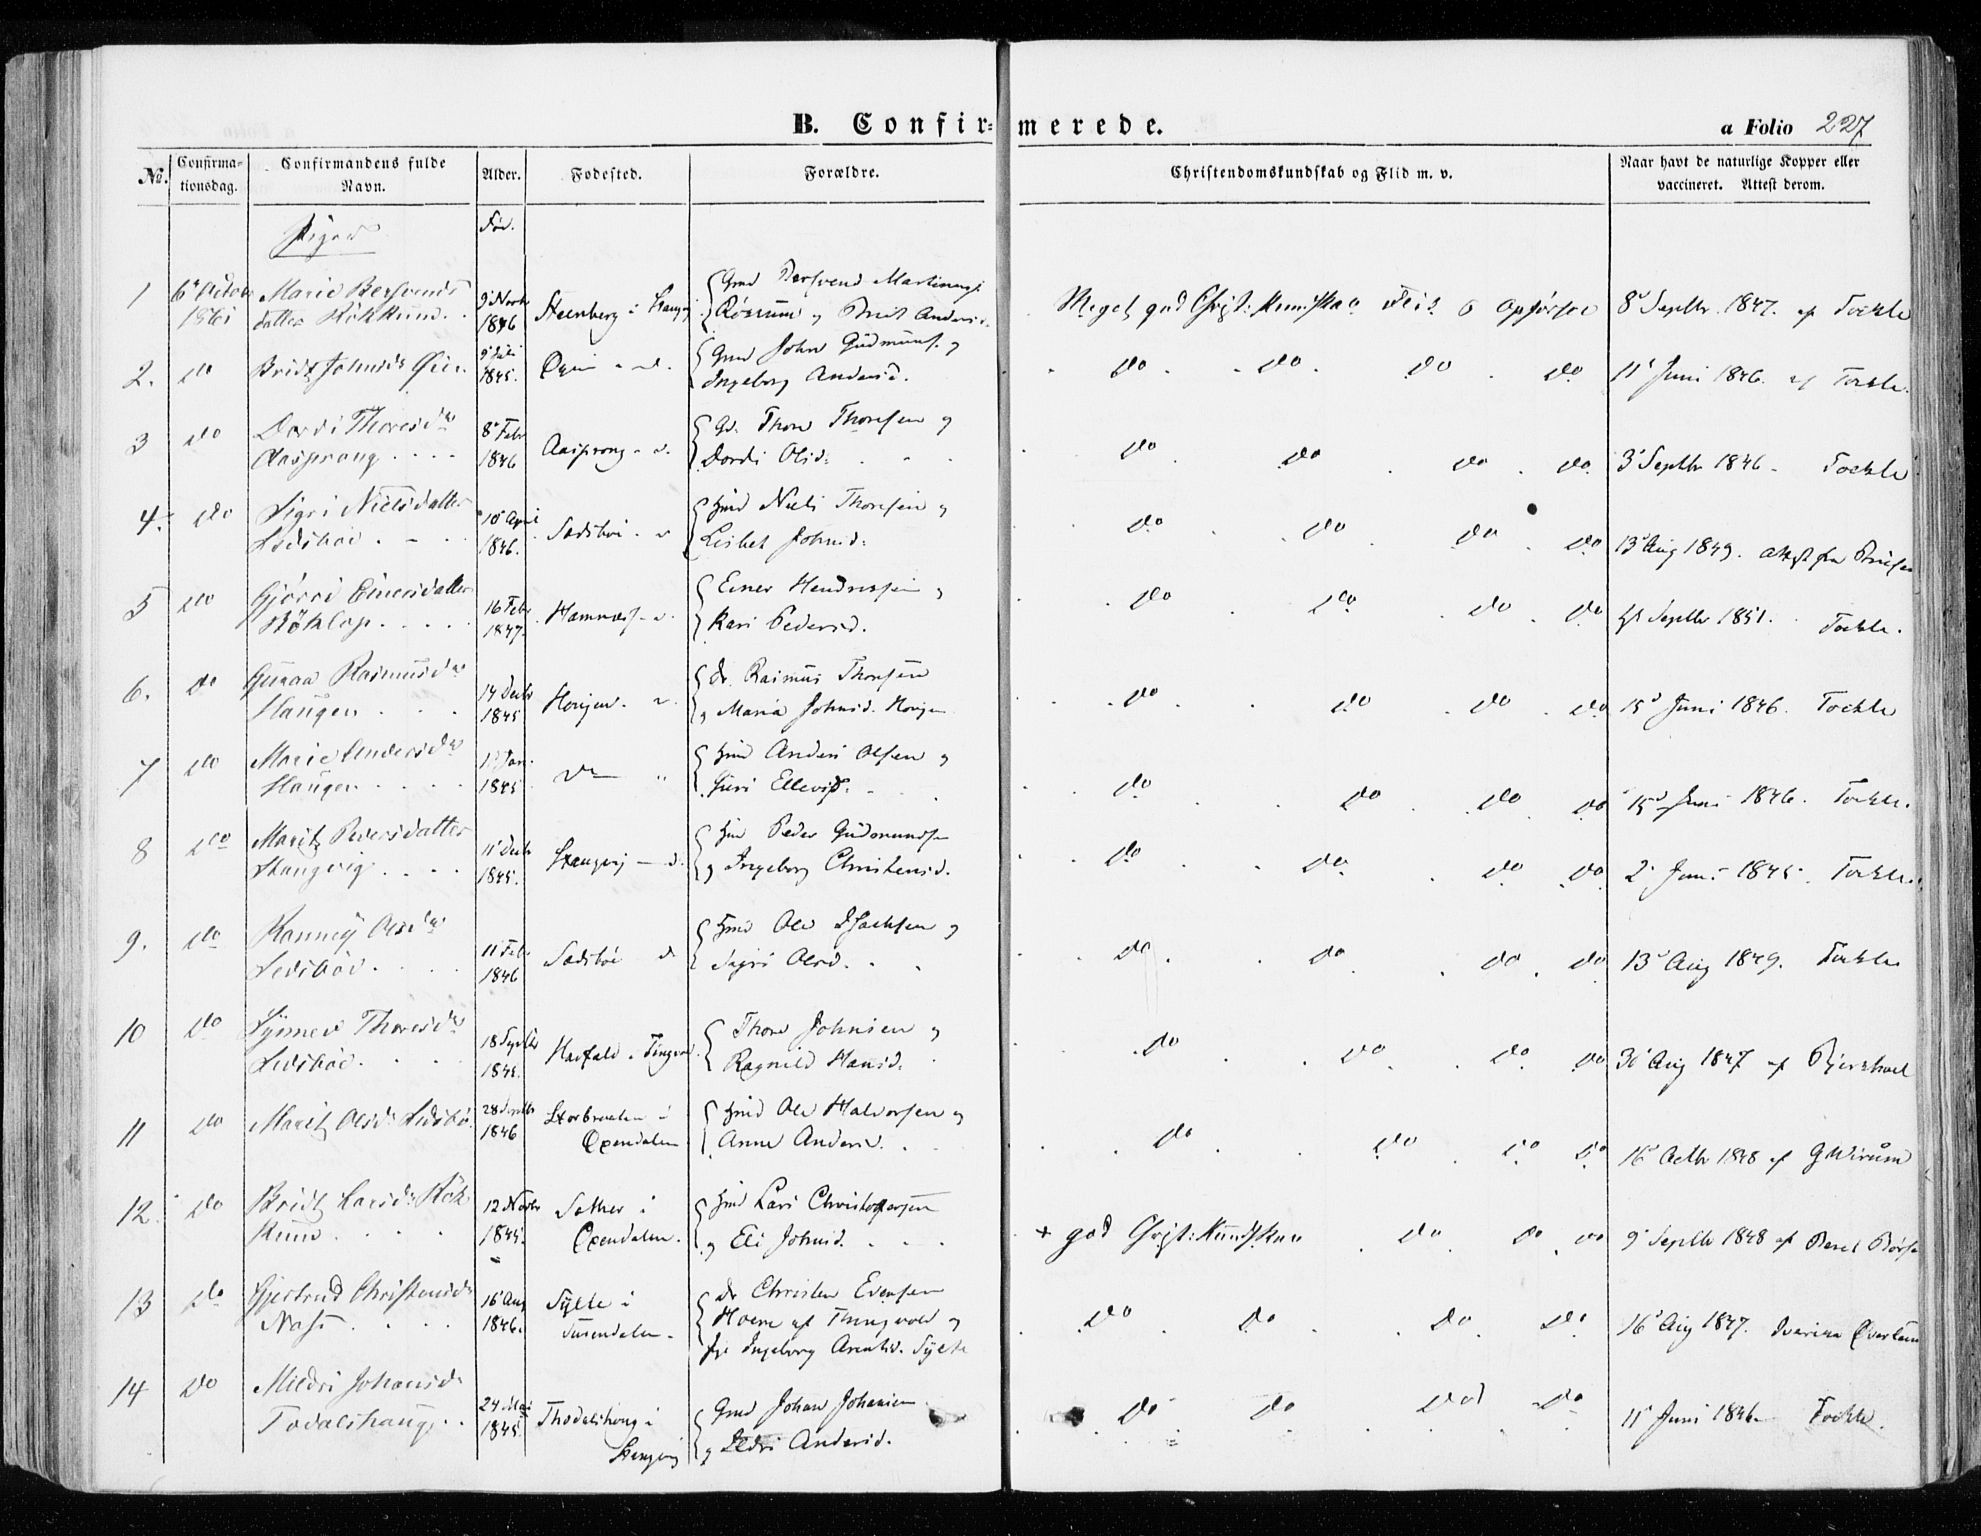 B. Confirmerede.
a Folio 227
No. Confirmationsdag. Confirmandens fulde Navn. Alder. Fødested. Forældre. Christendomskundskab og Flid m. v. Naar havt de naturlige Kopper eller vaccineret. Attest derom.
Piger Fød.
1 6 Octobr 1861 Marie Bersvends datter Røkkum 9 Novbr 1846 Steenberg i Stangvig Gmd Bersvend Martinusf: Røkkum og Brit Andersd. Meget god Christ: Kundskab Flid o Opførsel 8 Septbr 1847. af Tockle
2. do Bridt Johnsd: Øien 9 Juli 1845. Øyen - d. Gmd John Gudmunds. og Ingeborg Andersd. do do do do 11 Juni 1846 af Tockle.
3 do Dordi Thoresdr Aasprong 8 Febr 1846 Aasprong - d. Gd. Thore Thoresen og Dordi Olsd: do do do do 3 Septbr 1846 - Tockle
4. do Sigri Nielsdatter Sedsbøe 10 April 1846. Sædsbøe - d Hmd Niels Thoresen og Lisbet Johnsd: do do do do 13 Aug 1849. Attest fra
5 do Gjørri Einersdatter Bøklep 16 Febr 1847. Hamnæs - d. Einer Hendrissen og Kari Pedersd. do do do do Septbr 1851. Tockle.
6. do Guroa Rasmusdr Haugen 14 Decbr 1845 Honjem - d. do. Rasmus Thoresen og Maria Johnsd. Honjem do do do do 15 Juni 1846. Tockle
7 do Marie Andersdr Haugen Jan. 1845 do " Hmd Anders Olsen og Guri Ellevsd. do do do do 15 Juni 1846. Tockle.
8 do Marit Pedersdatter Stangvig 11 Decbr 1845. Stangvig - d. Hmd Peder Gudmundsen og Ingeborg Christensd. do do do do 2 Juni 1845. Tockle.
9. do Ranney Olsdr Sedsbøe 11 Febr 1846 Sædsbøe d Hmd Ole Isachsen og Sigri Olsd. do do do do 13 Aug 1849. Tockle
10 do Synnev Thoresdr Sedsbøe 18 Septbr 1845. i Tingvold Thore Johnsen og Ragnild Hansd. do do do do 30 Aug 1847 af
11 do Marit Olsd: Sedsbø 28 Septbr 1846 Storbraaten i Øxendalen Hmd Ole Halvorsen og Anne Andersd. do do do do 16 Octbr 1848 af G Wirum
12. do Bridt Larsd: Røkkum 12 Novbr 1845. Sæther i Øxendalen. Hmd Lars Christophersen og Eli Johnsd. + god Christ: Kundskab do do do 9 Septbr 1848 af Beret
13 do Gjertrud Christensdr Næss 16 Aug 1846. Sylte i Surendalen. do Christen Evensen Hoem af Thingvold og Pige Ingeborg Arentsd. Sylte do do do do 16 Aug 1847.
14 do Mildri Johansd: Todalshaug 24 Mai 1845 Thodalshaug i Stangvig Gmd Johan Johansen og Ildri Andersd. do do do do 11 Juni 1846 Tockle.